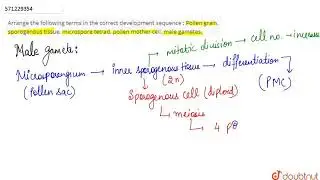 571229354
Arrange the following terms in the correct development sequence : Pollen grain,
sporogenous tissue, microspore tetrad, pollen mother cell, male gametes.
Male gamete:
mitotic division → cell no. → increase
Microsporangium → inner sporogenous tissue → differentiation
(pollen sac) (2n) (PMC)
Sporogenous cell (diploid)
→ meiosis
→ 4 po
doubtnut